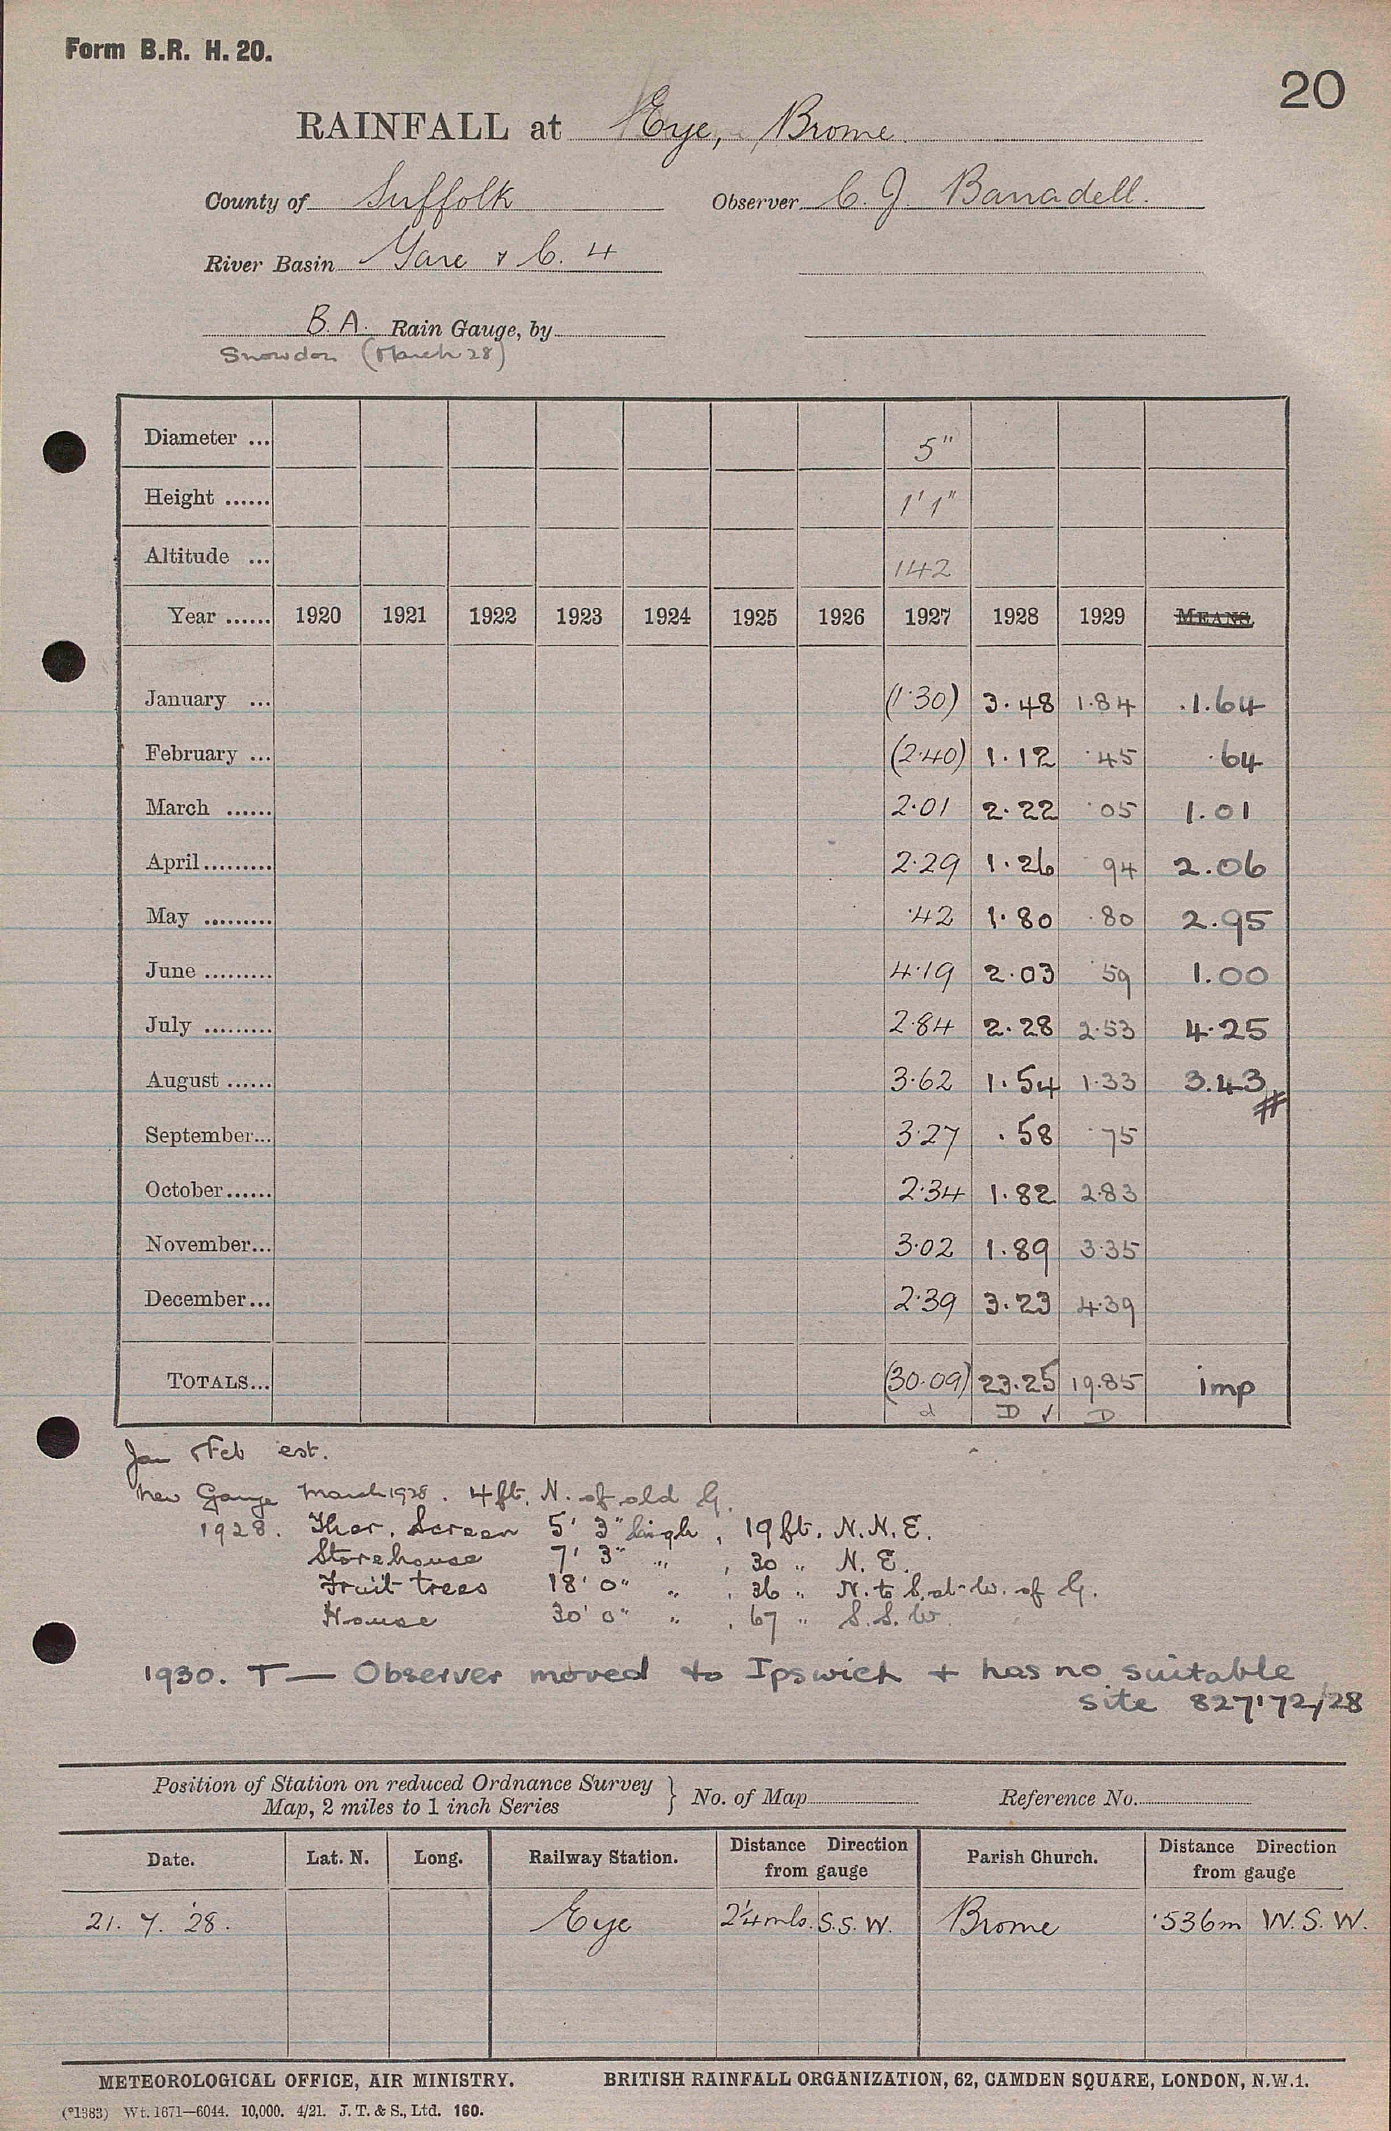 Form B.R. H. 20.
20
RAINFALL at Eye, Brome
County of Suffolk Observer C. J. Banadell.
River Basin Yare & C. 4
B.A. Rain Gauge, by
Snowdon (March 28)
Diameter ... 5"
Height ...... 1' 1"
Altitude ... 142
Year ...... 1920 1921 1922 1923 1924 1925 1926 1927 1928 1929 MEANS
January ... (1·30) 3·48 1·84 ·1·64
February ... (2·40) 1·12 ·45 ·64
March ...... 2·01 2·22 ·05 1·01
April......... 2·29 1·26 94 2·06
May ......... ·42 1·80 ·80 2·95
June ......... 4·19 2·03 ·59 1·00
July ......... 2·84 2·28 2·53 4·25
August ...... 3·62 1·54 1·33 3·43 #
September... 3·27 ·58 ·75
October...... 2·34 1·82 2·83
November... 3·02 1·89 3·35
December... 2·39 3·23 4·39
TOTALS... (30·09) 23·25 19·85 imp
d D ✓ D
Jan & Feb est.
New Gauge March 1928. 4 ft. N. of old G.
1928. Ther. Screen 5' 3" high, 19 ft. N.N.E.
Storehouse 7' 3" " , 30 " N.E.
Fruit trees 18' 0" " , 36 " N. to S. at W. of G.
House 30' 0" " , 67 " S.S.W.
1930. T— Observer moved to Ipswich + has no suitable
site 827172/28
Position of Station on reduced Ordnance Survey
Map, 2 miles to 1 inch Series } No. of Map Reference No.
Date. Lat. N. Long. Railway Station. Distance Direction from gauge Parish Church. Distance Direction from gauge
21. 7. '28. Eye 2¼ mls. S.S.W. Brome ·536m W.S.W.
METEOROLOGICAL OFFICE, AIR MINISTRY. BRITISH RAINFALL ORGANIZATION, 62, CAMDEN SQUARE, LONDON, N.W.1.
(*1383) Wt. 1671—6044. 10,000. 4/21. J. T. & S., Ltd. 160.